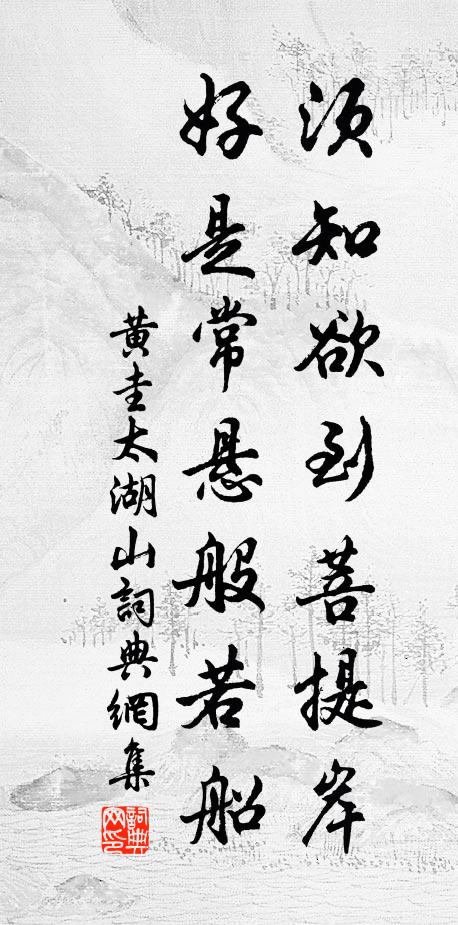 须知欲到菩提岸
好是常悬般若船
黄圭太湖山詞典網集
詞典網印